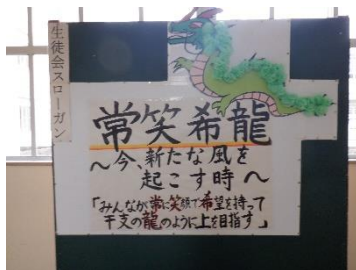 生徒会スローガン
常笑希龍
～今、新たな風を
起こす時～
「みんなが常に笑顔で希望を持って
干支の龍のように上を目指す」